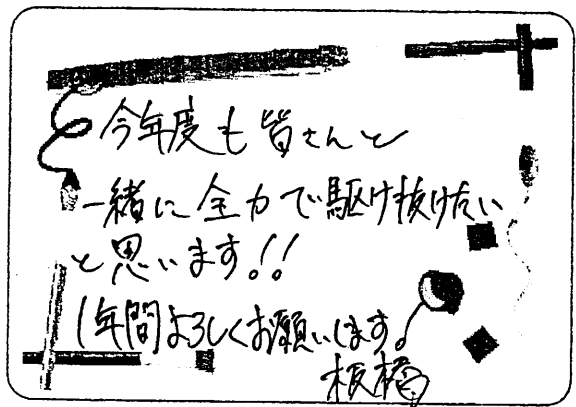 今年度も皆さんと
一緒に全力で駆け抜けたい
と思います!!
1年間よろしくお願いします。
板橋